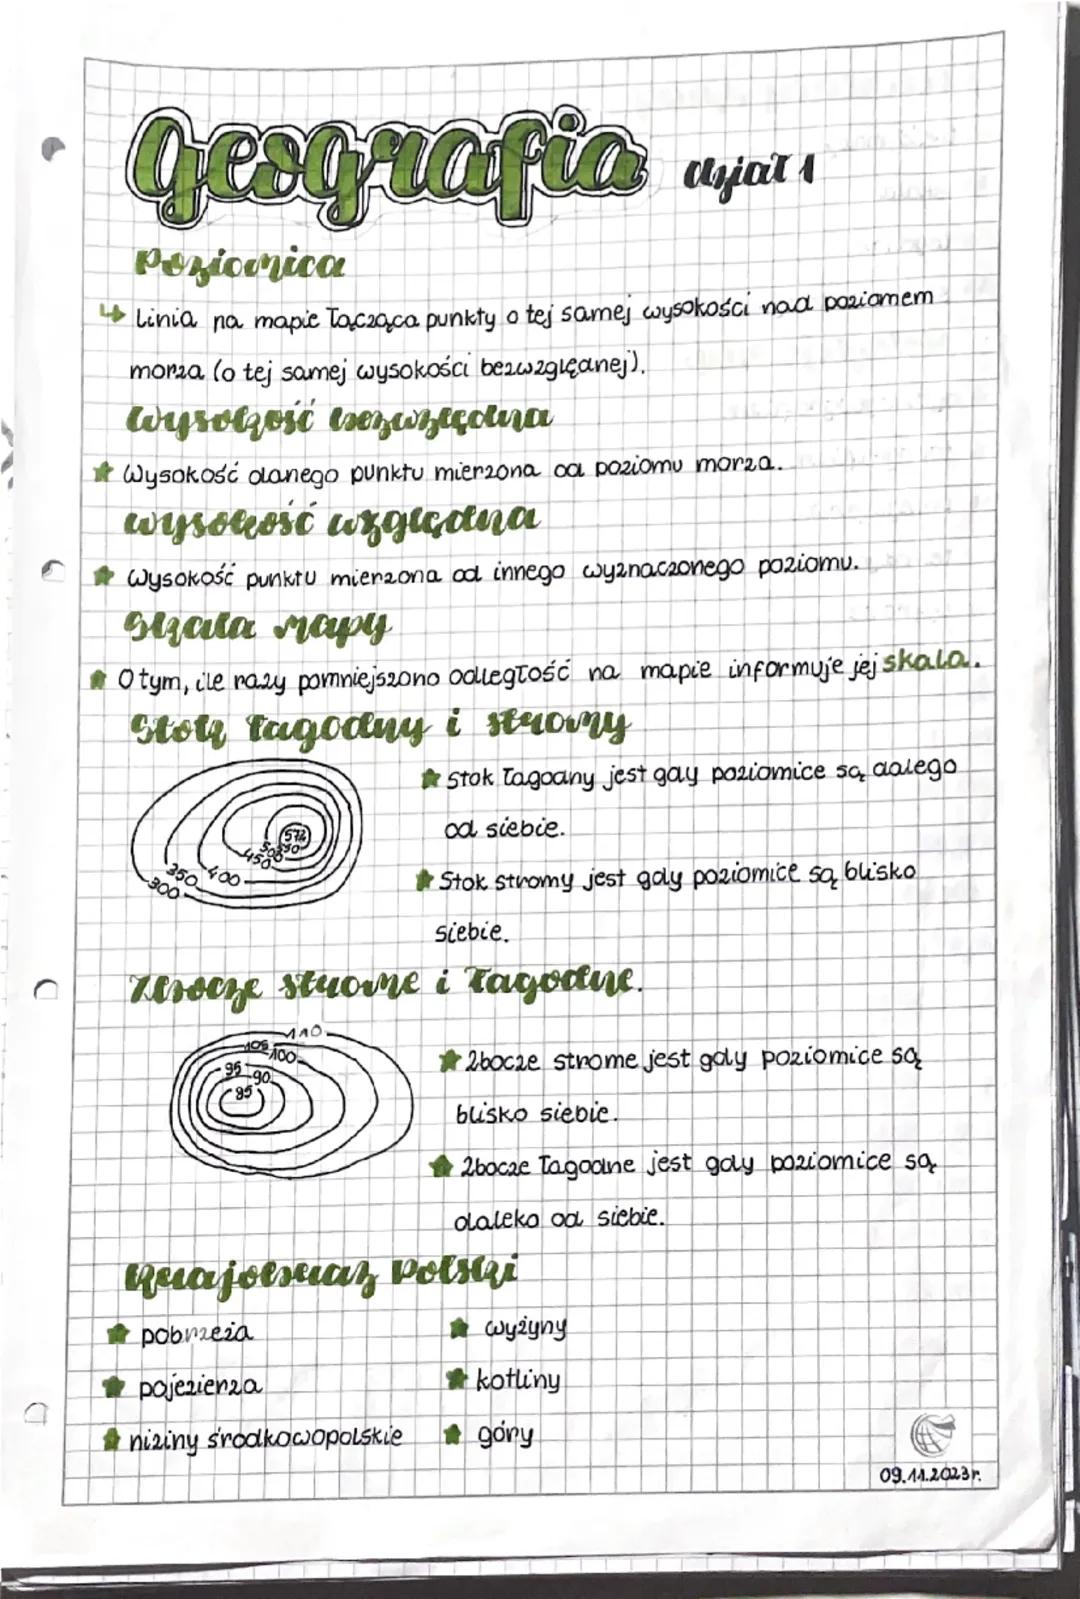 Geografia dział 1
Poziomica
Linia na mapie łącząca punkty o tej samej wysokości nad poziomem
morza (o tej samej wysokości bezwzględnej).
Wysokość bezwzględna
Wysokość danego punktu mierzona od poziomu morza.
wysokość względna
Wysokość punktu mierzona od innego wyznaczonego poziomu.
Skala mapy
O tym, ile razy pomniejszono odległość na mapie informuje jej skala.
Stok łagodny i stromy
Stok łagodny jest gdy poziomice są dalego
od siebie.
Stok stromy jest gdy poziomice są blisko
siebie.
572
550
500
450
400
350
300
Zbocze strome i łagodne.
110
105
100
95
90
85
Zbocze strome jest gdy poziomice są
blisko siebie.
Zbocze łagodne jest gdy poziomice są
daleko od siebie.
Krajobraz Polski
pobrzeża
wyżyny
pojezierza
kotliny
niziny środkowopolskie
góry
09.11.2023r.